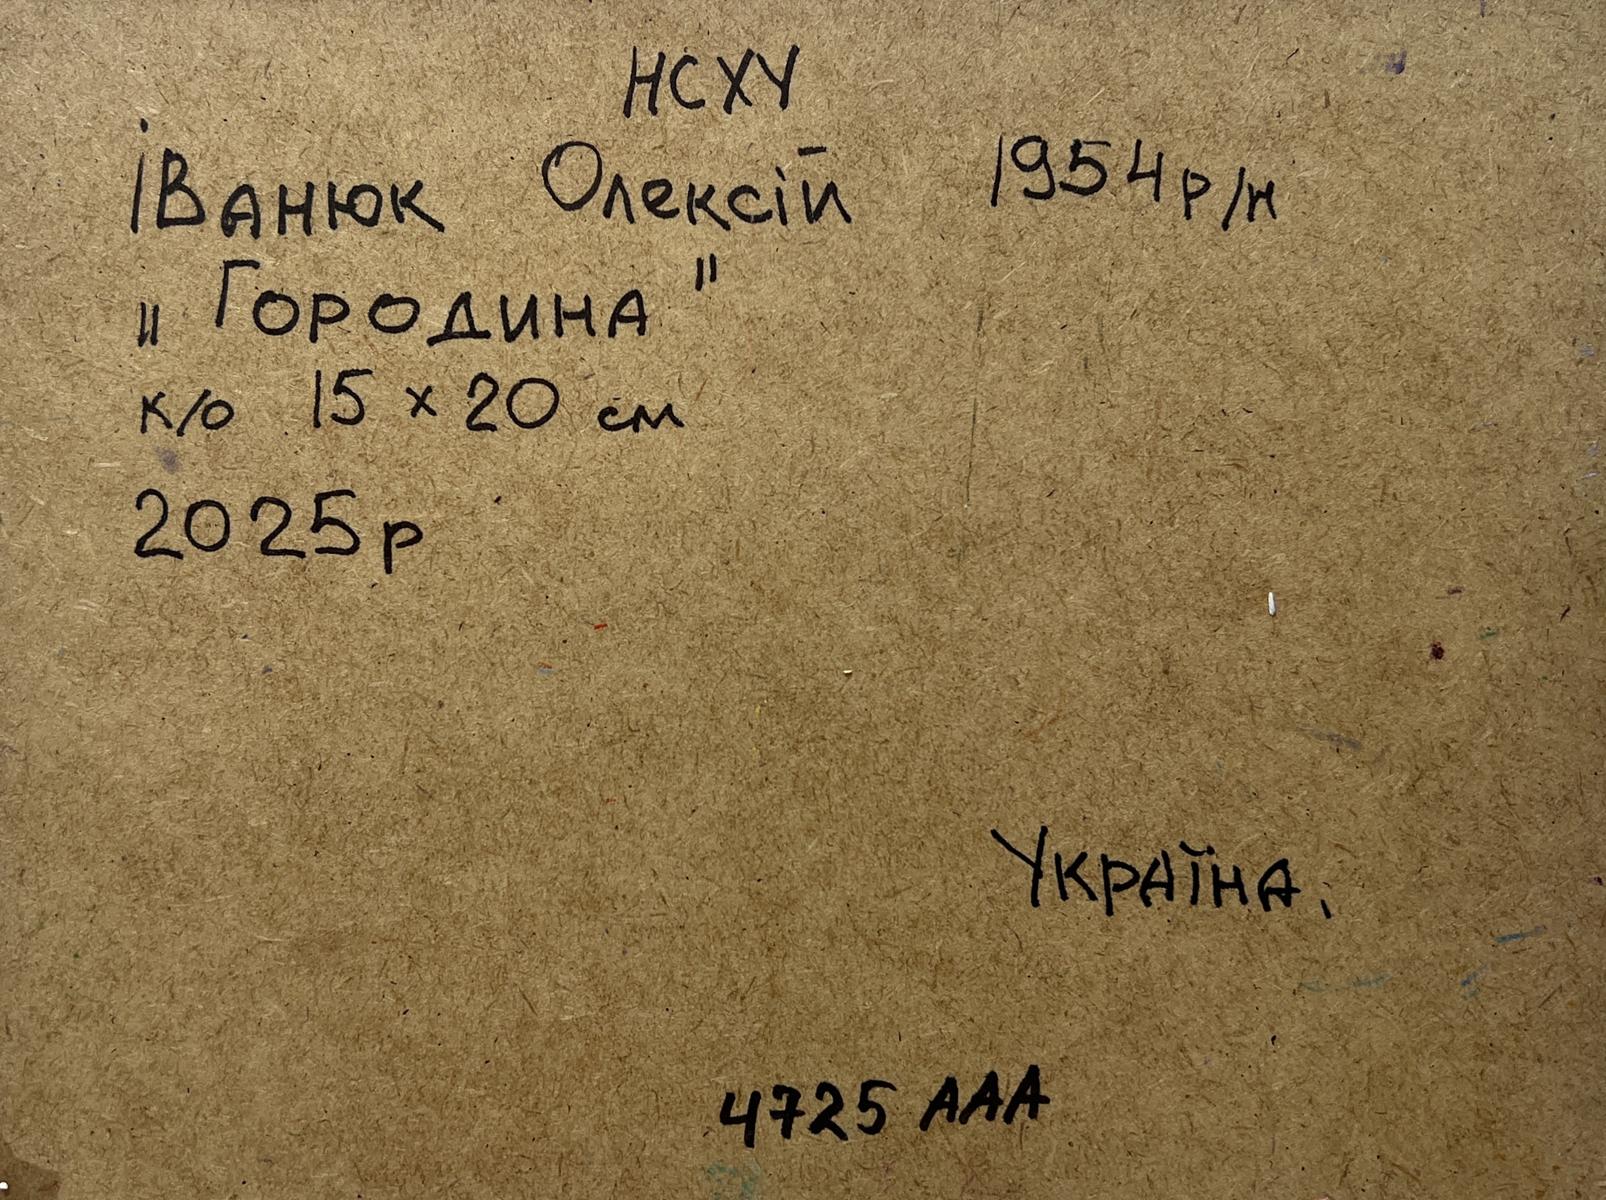 НСХУ
Іванюк Олексій 1954 р/н
„Городина"
к/о 15 × 20 см
2025р
Україна.
4725 ААА